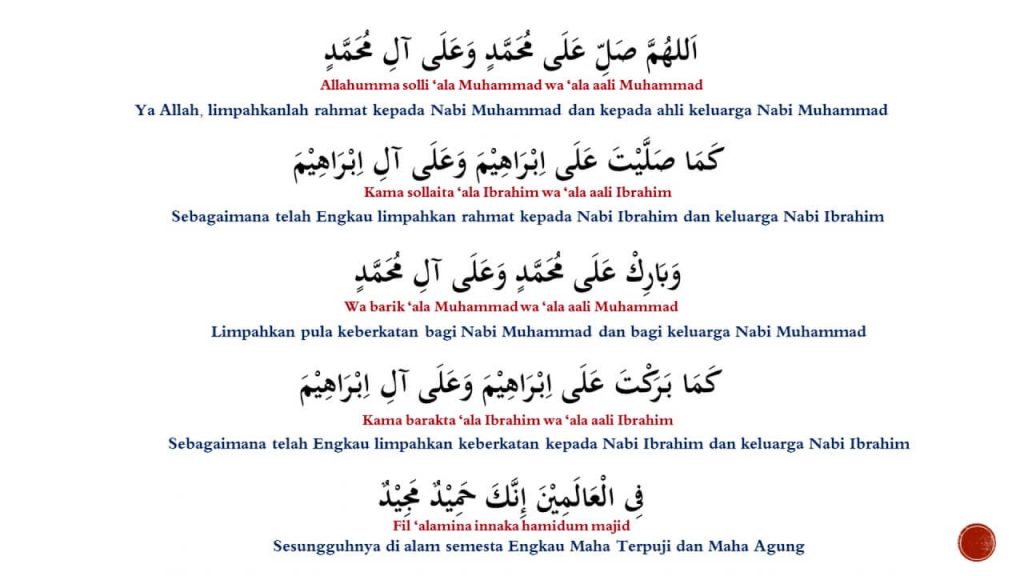 اَللهُمَّ صَلِّ عَلَى مُحَمَّدٍ وَعَلَى آلِ مُحَمَّدٍ
Allahumma solli ‘ala Muhammad wa ‘ala aali Muhammad
Ya Allah, limpahkanlah rahmat kepada Nabi Muhammad dan kepada ahli keluarga Nabi Muhammad
كَمَا صَلَّيْتَ عَلَى اِبْرَاهِيْمَ وَعَلَى آلِ اِبْرَاهِيْمَ
Kama sollaita ‘ala Ibrahim wa ‘ala aali Ibrahim
Sebagaimana telah Engkau limpahkan rahmat kepada Nabi Ibrahim dan keluarga Nabi Ibrahim
وَبَارِكْ عَلَى مُحَمَّدٍ وَعَلَى آلِ مُحَمَّدٍ
Wa barik ‘ala Muhammad wa ‘ala aali Muhammad
Limpahkan pula keberkatan bagi Nabi Muhammad dan bagi keluarga Nabi Muhammad
كَمَا بَرَكْتَ عَلَى اِبْرَاهِيْمَ وَعَلَى آلِ اِبْرَاهِيْمَ
Kama barakta ‘ala Ibrahim wa ‘ala aali Ibrahim
Sebagaimana telah Engkau limpahkan keberkatan kepada Nabi Ibrahim dan keluarga Nabi Ibrahim
فِى الْعَالَمِيْنَ إِنَّكَ حَمِيْدٌ مَجِيْدٌ
Fil ‘alamina innaka hamidum majid
Sesungguhnya di alam semesta Engkau Maha Terpuji dan Maha Agung